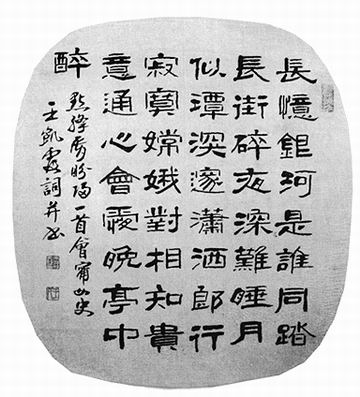 長憶銀河是誰同踏
長街碎夜深難睡月
似潭深邃瀟洒郎行
寂寞嫦娥對相知貴
意通心會愛晚亭中
醉
點絳唇盼歸一首會甯女史
王凱霞詞并書